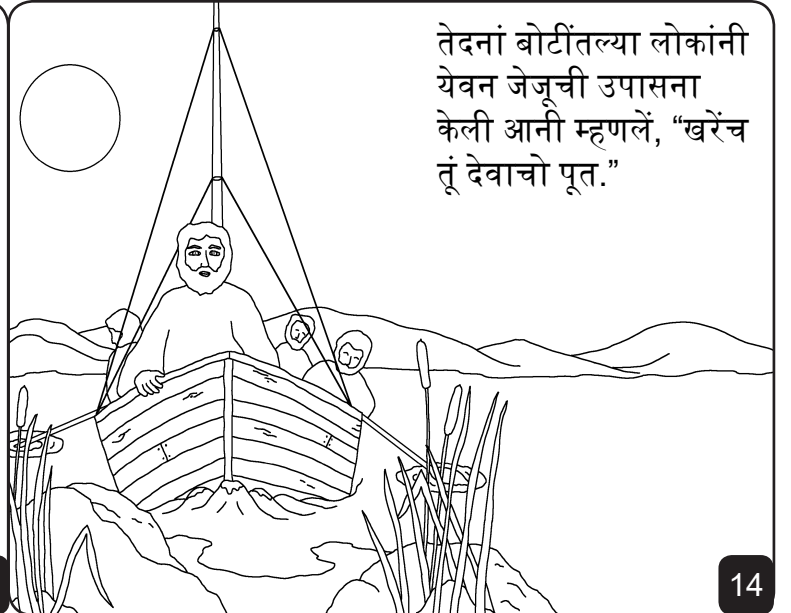 तेदनां बोटींतल्या लोकांनी
येवन जेजूची उपासना
केली आनी म्हणलें, “खरेंच
तूं देवाचो पूत.”
14